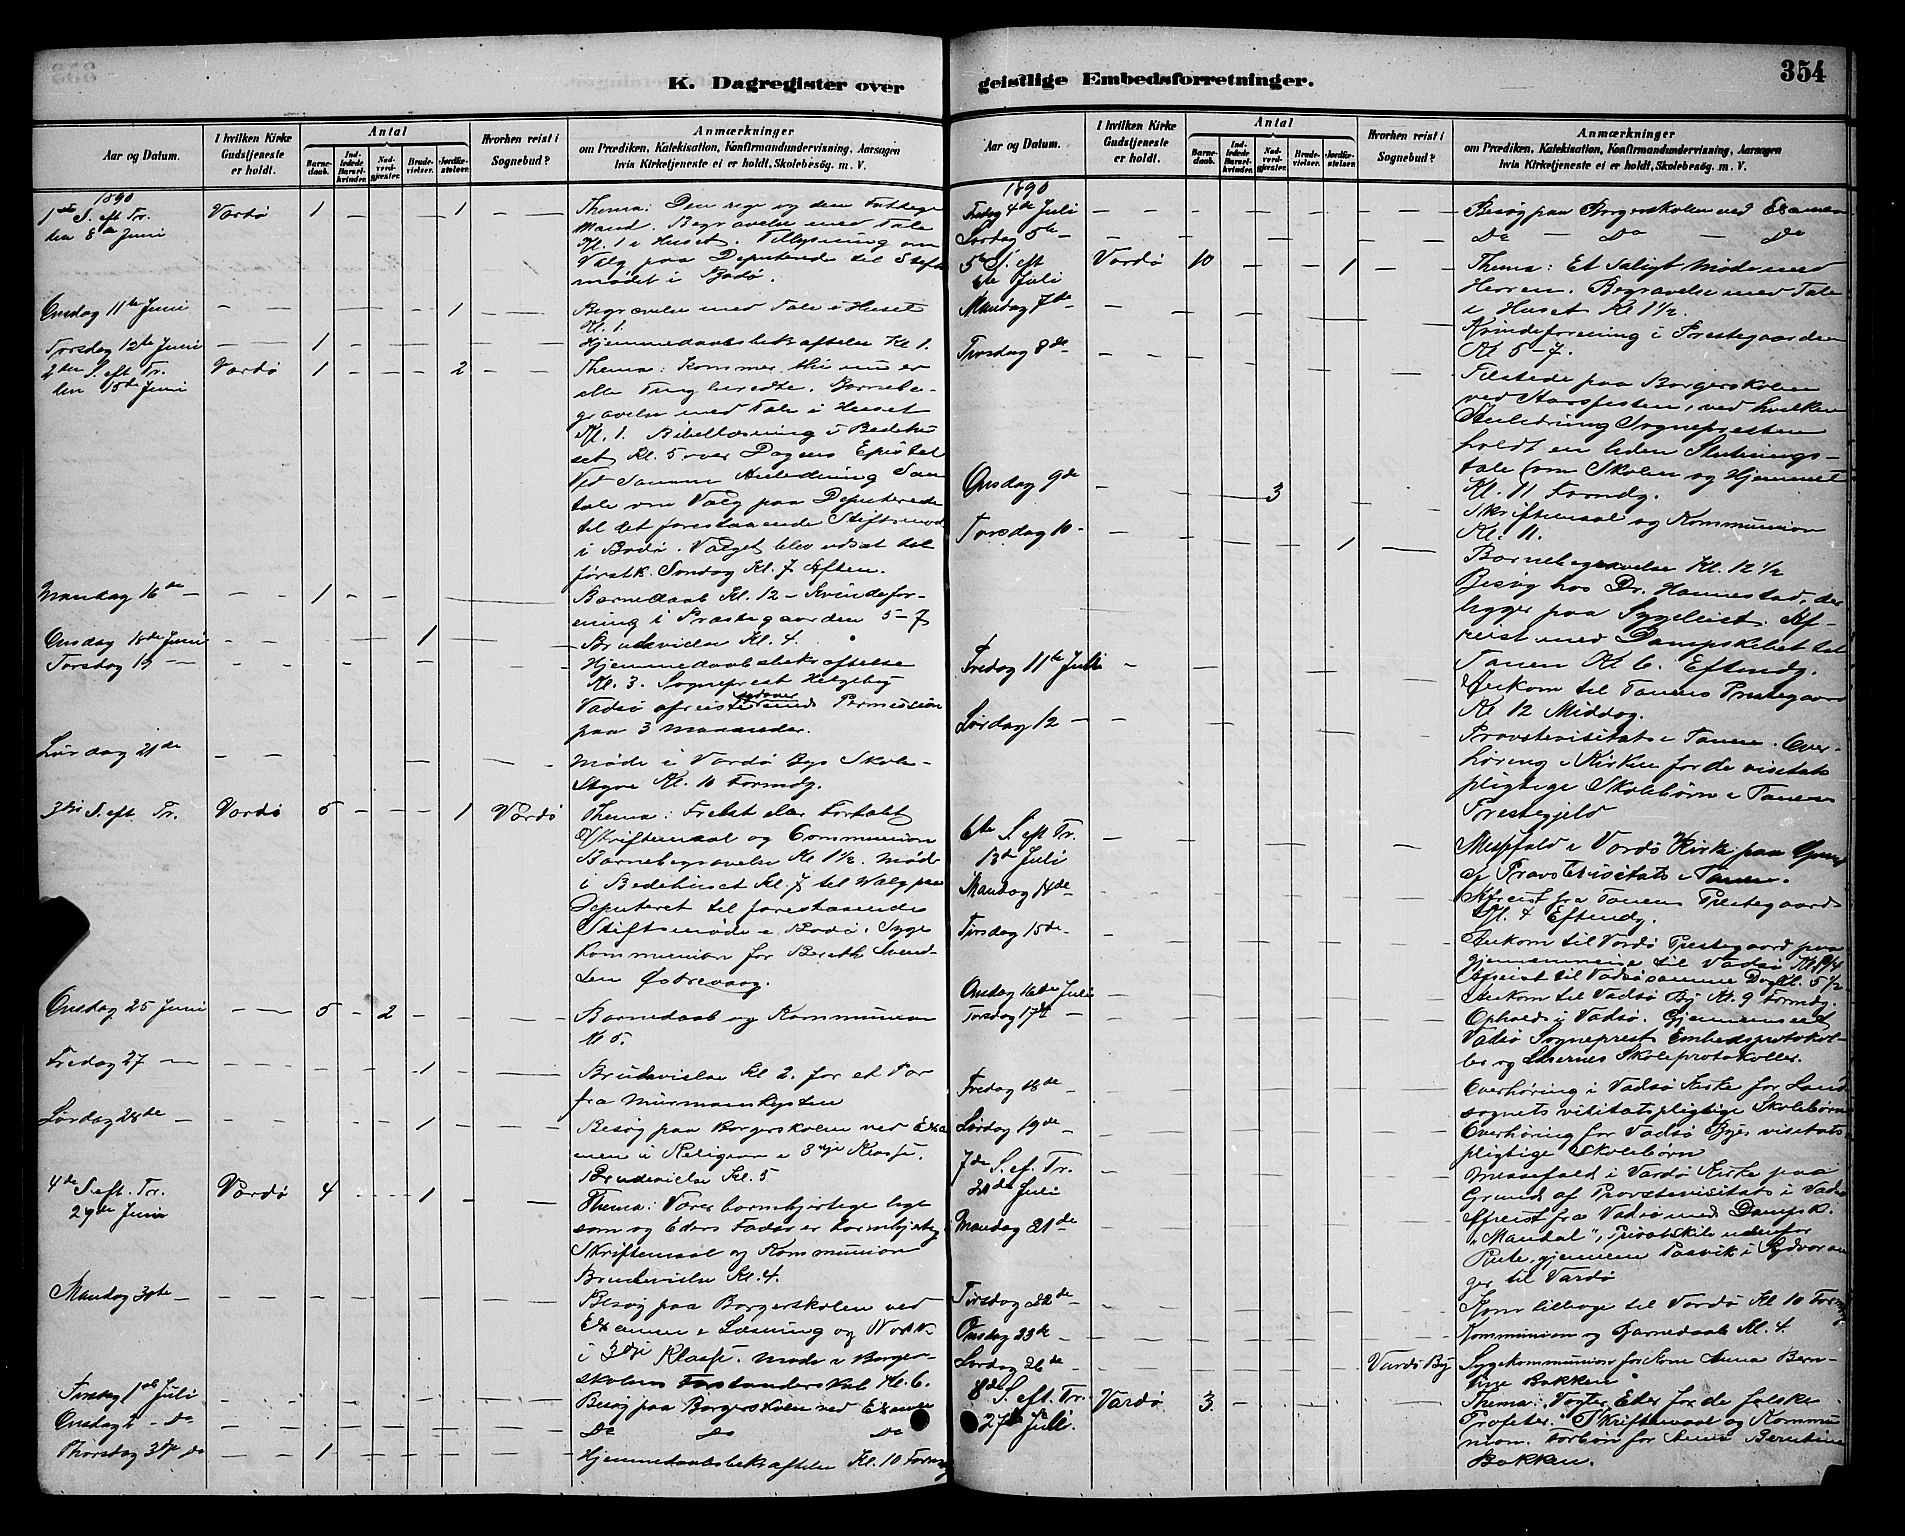 K. Dagregister over
Aar og Datum.
I hvilken Kirke Gudstjeneste er holdt.
Antal
Barnedaab.
Indledede Barselkvinder.
Nadverdgjester.
Brudevielser.
Jordfæstelser.
Hvorhen reist i Sognebud?
Anmærkninger
om Prædiken, Katekisation, Konfirmandundervisning, Aarsagen
hvis Kirketjeneste ei er holdt, Skolebesög. m. V.
1890
1ste S. eft Tr. Vardø 1 — — 1 — Thema: Den rige og den Fattige
den 8de Juni Mand. Begravelse med Tale
Kl. 1 i Huset. Tillysning om
Valg paa Deputerede til Stifts
mødet i Bodø.
Onsdag 11te Juni — — — — 1 — Begravelse med Tale i Huset
Kl. 1.
Torsdag 12te Juni — 1 — — — Hjemmedaabsbekræftelse Kl 1.
2den S. eft Tr. Vardø 1 — — 2 — Thema: Kommer, thi nu er
den 15de Juni alle Ting beredte. Barnebe-
gravelse med Tale i Huset
Kl. 1. Bibellæsning i Bedehu
set Kl. 5 over Dagens Epistel
Ved samme Anledning Sam
tale om Valg paa Deputerede
til det forestaaende Stiftsmøde
i Bodø. Valget blev udsat til
førstk. Søndag Kl. 7 Aften.
Mandag 16de — — — 1 — — — Barnedaab Kl. 12 – Kvindefor-
ening i Præstegaarden 5–7
Onsdag 18de Juni — — — 1 — Brudevielse Kl. 4.
Torsdag 19 — — — — — Hjemmedaabsbekræftelse
Kl. 3. Sogneprest
Vadsø afreist sydover med Permission
paa 3 Maaneder.
Lørdag 21de — — — — — Møde i Vardø Bys Skole-
styre Kl. 10 Formdg.
3die S. eft. Tr. Vardø 5 — — — 1 Vardø Thema: Frelst eller Fortabt
Skriftemaal og Communion
Barnebegravelse Kl 1½. Møde
i Bedehuset Kl. 7 til Valg paa
Deputeret til forestaaende
Stiftsmøde i Bodø. Syge
kommunion for Berethe Svend-
sen Østrevaag.
Onsdag 25 Juni — — 5 — 2 — — — Barnedaab og Kommunion
Kl 5.
Fredag 27 — — — — 1 — — Brudevielse Kl 2. for et Par
fra Murmanskysten
Lørdag 28de — — — — 1 — — Besøg paa Borgerskolen ved Exa
men i Religion i 3die Klasse.
Brudevielse Kl. 5
4de S. eft. Tr. Vardø 4 — — 1 — — Thema: Værer barmhjertige lige
29de Juni som og Eders Fader er barmhjertig
Skriftemaal og Kommunion
Brudevielse Kl. 4.
Mandag 30te — — — — — — Besøg paa Borgerskolen ved
Examen i Læsning og Norsk
i 3die Klasse. Møde i Borger-
skolens Forstanderskab Kl. 6.
Tirsdag 1ste Juli — — — — — Besøg paa Borgerskolen ved Examen
Onsdag 2 – do — — — — — Do Do Do
Thorsdag 3die do — 1 — — — Hjemmedaabsbekræftelse Kl. 10 Formdg
geistlige Embedsforretninger.
354
Aar og Datum.
I hvilken Kirke Gudstjeneste er holdt.
Antal
Barnedaab.
Indledede Barselkvinder.
Nadverdgjester.
Brudevielser.
Jordfæstelser.
Hvorhen reist i Sognebud?
Anmærkninger
om Prædiken, Katekisation, Konfirmandundervisning, Aarsagen
hvis Kirketjeneste ei er holdt, Skolebesög. m. V.
1890
Fredag 4de Juli — — — — — Besøg paa Borgerskolen ved Examen
Lørdag 5te — — — — — Do — Do — Do
5te S. eft Vardø 10 — — 1 — Thema: Et saligt Møde med
6te Juli Herren. Begravelse med Tale
i Huset Kl 1½.
Mandag 7de — — — — — Kvindeforening i Prestegaarden
Kl 5–7.
Tirsdag 8de — — — — — Tilstede paa Borgerskolen
ved Aarsfesten, ved hvilken
Anledning Sognepresten
holdt en liden Slutnings-
tale om Skolen og Hjemmet
Kl. 11 Formdg.
Onsdag 9de — — — 3 — — Skriftemaal og Kommunion
Kl. 11.
Torsdag 10 – — — — 1 — Barnebegravelse Kl. 12½
Besøg hos Dr. Hannestad, der
ligger paa Sygeleiet. Af-
reist med Dampskibet til
Tanen Kl 6. Eftmdg.
Fredag 11te Juli — — — — — Ankom til Tanens Prestegaard
Kl 12 Middag.
Lørdag 12 — — — — — Provstevisitats i Tanen. Over-
høring i Kirken for de visitats
pligtige Skolebørn i Tanens
Prestegjeld
6te S. eft Tr. — — — — Messefald i Vardø Kirke paa Grund
13de Juli af Provstevisitats i Tanen.
Mandag 14de — — — — — Afreist fra Tanens Prestegaard
Kl. 4 Eftmdg.
Tirsdag 15de — — — — — Ankom til Vardø Prestegaard paa
gjennemreise til Vadsø
Afreist til Vadsø samme Dag Kl. 5½
Onsdag 16de Juli — — — — — Ankom til Vadsø By Kl. 9 Formdg.
Torsdag 17de — — — — — Ophold i Vadsø. Gjennemseet
Vadsø Sogneprest Embedsprotokol-
ler og Lærernes Skoleprotokoller.
Fredag 18de — — — — — Overhøring i Vadsø Kirke for Land
sognets visitatspligtige Skolebørn
Lørdag 19de — — — — — Overhøring for Vadsø Byes visitats
pligtige Skolebørn
7de S. ef. Tr. — — — — Messefald i Vardø Kirke paa
20de Juli Grund af Provstevisitats i Vadsø
Mandag 21de — — — — — Afreist fra Vadsø med Dampsk.
„Mandal", Privatskib udenfor
Rute, gjennem Pasvik i Sydvaran
ger til Vardø
Tirsdag 22de — — — — — Kom tilbage til Vardø Kl 10 Formdg
Onsdag 23de — — — — — Kommunion og Barnedaab Kl. 4.
Lørdag 26de — — — — Vardø By Sygekommunion for Kone Anna Bern-
tine Bakken
8de S. eft Tr. Vardø 3 — — — — Thema: Vogter Eder for de falske
27de Juli. Profeter. Skriftemaal og Kommu
nion. Forbøn for Anna Berntine
Bakken.